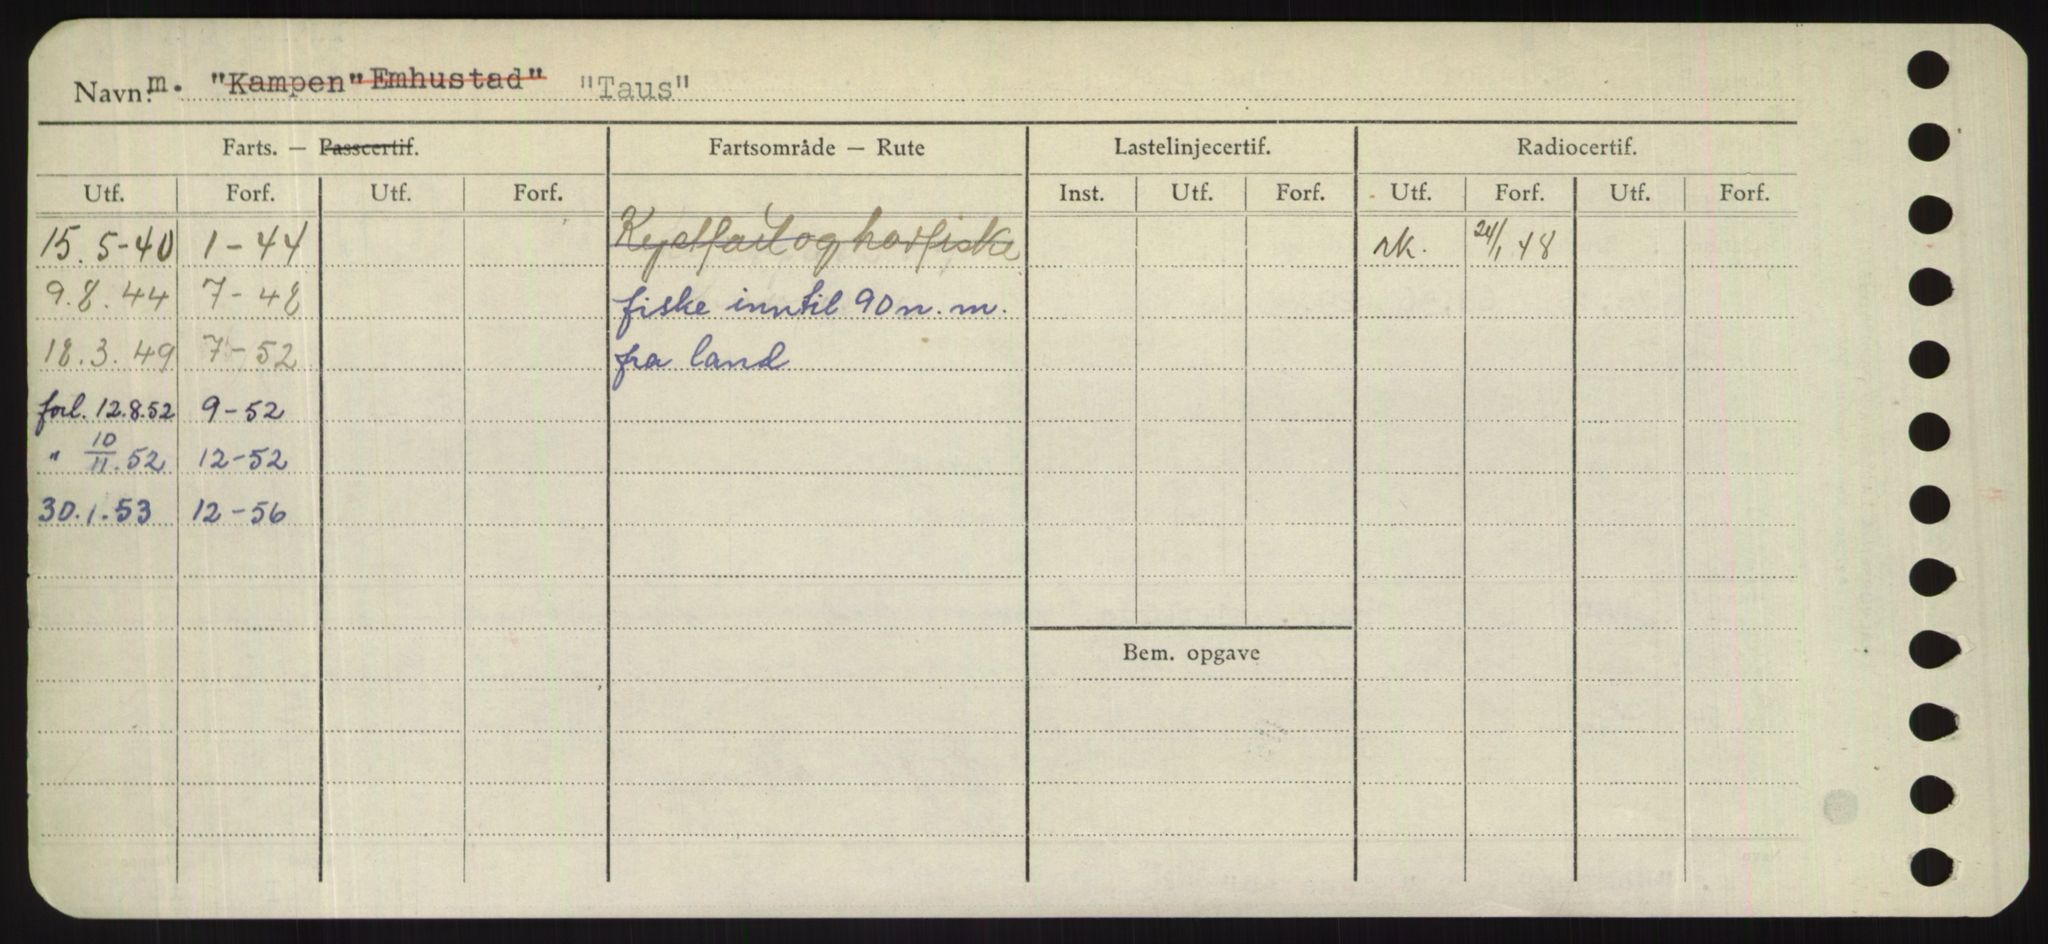 Navn: m. "Kampen" Emhustad" "Taus"
Farts. — Passcertif. Fartsområde — Rute Lastelinjecertif. Radiocertif.
Utf. Forf. Utf. Forf. Inst. Utf. Forf. Utf. Forf. Utf. Forf.
15. 5-40 1-44 Kystfart og havfiske rk. 24/1 48
9. 8. 44 7-48 fiske inntil 90 n. m.
18. 3. 49 7-52 fra land
forl. 12.8.52 9-52
" 10/11. 52 12-52
30. 1. 53 12-56
Bem. opgave